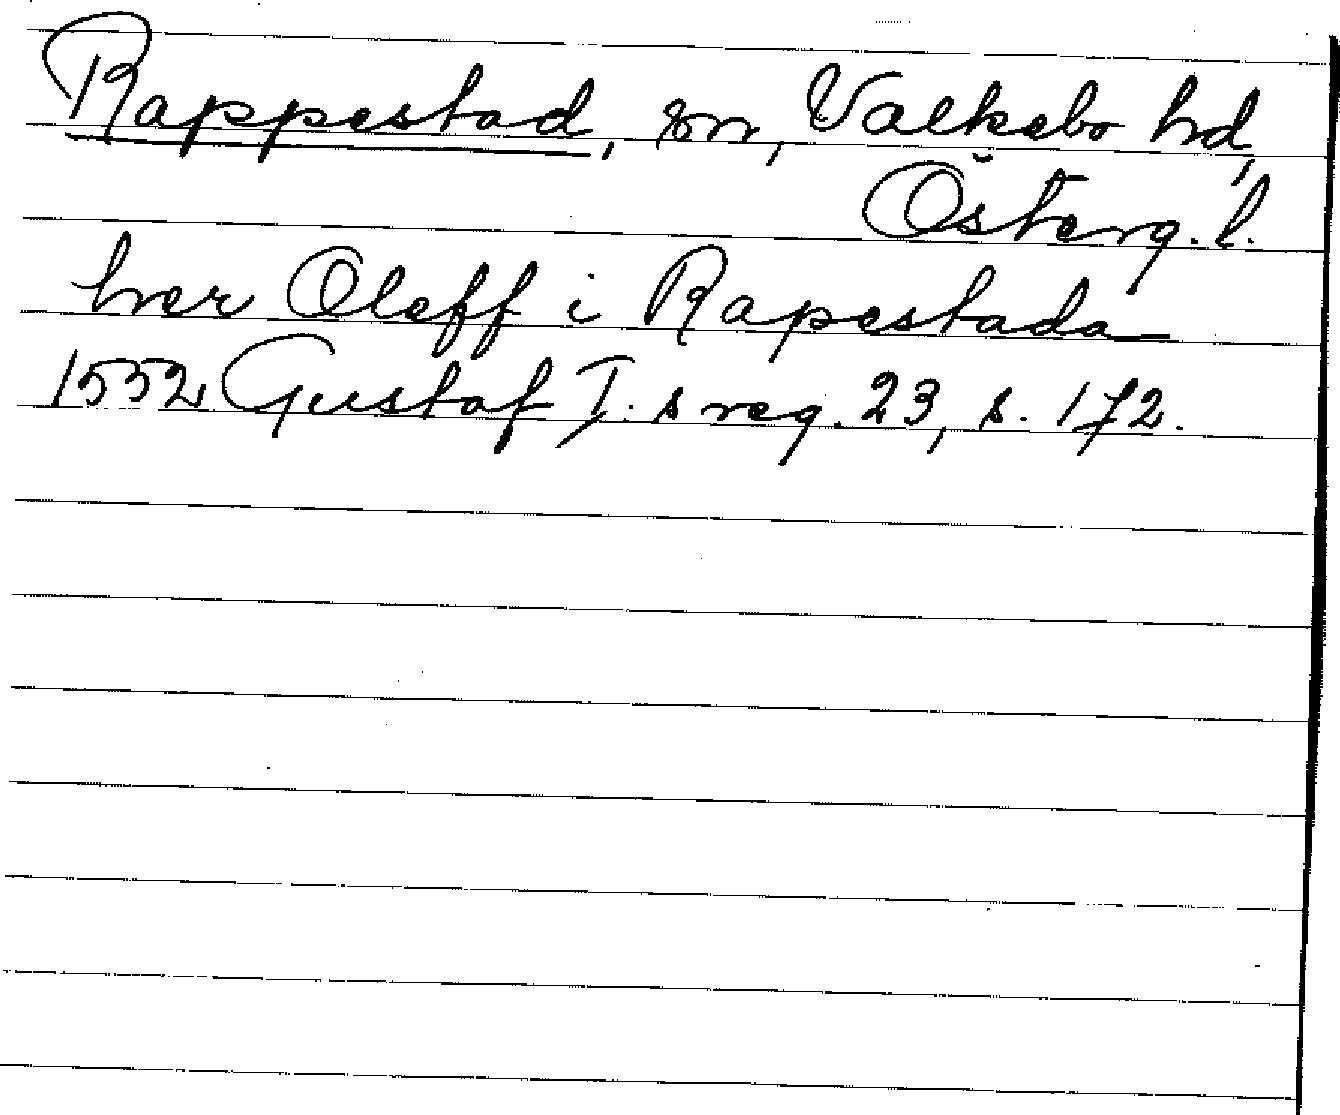 Rappestad, sn, Valkebo hd,
Österg. l.
her Oleff i Rapestada
1552 Gustaf I. s reg. 23, s. 172.